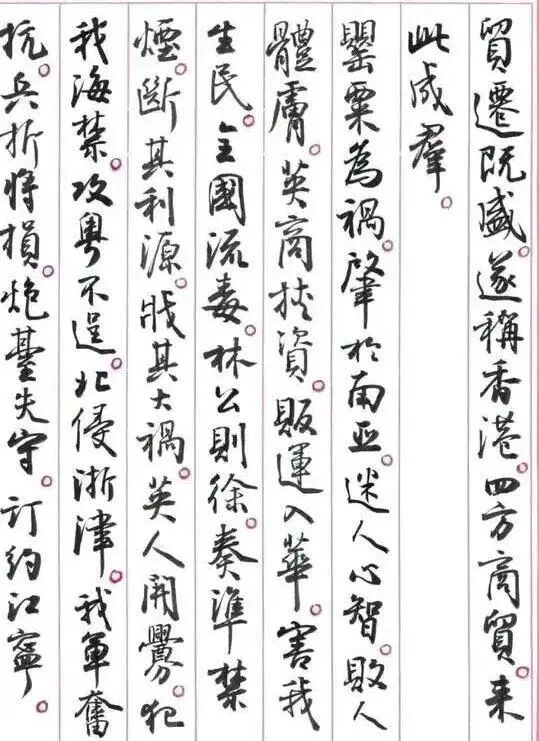 貿遷既盛。遂稱香港。四方商貿。来
此成羣。
罌粟為禍。肇於南亚。迷人心智。敗人
體膚。英商挟資。販運入華。害我
生民。全國流毒。林公則徐。奏準禁
煙。斷其利源。戕其大禍。英人開釁。犯
我海禁。攻粵不逞。北侵浙津。我軍奮
抗。兵折將損。炮臺失守。订约江寧。